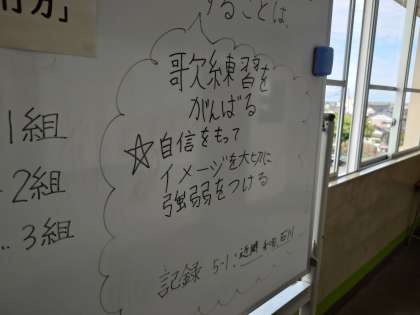 することは、
歌練習を
がんばる
☆自信をもって
イメージを大切に
強弱をつける
1組
2組
3組
記録 5-1:近藤